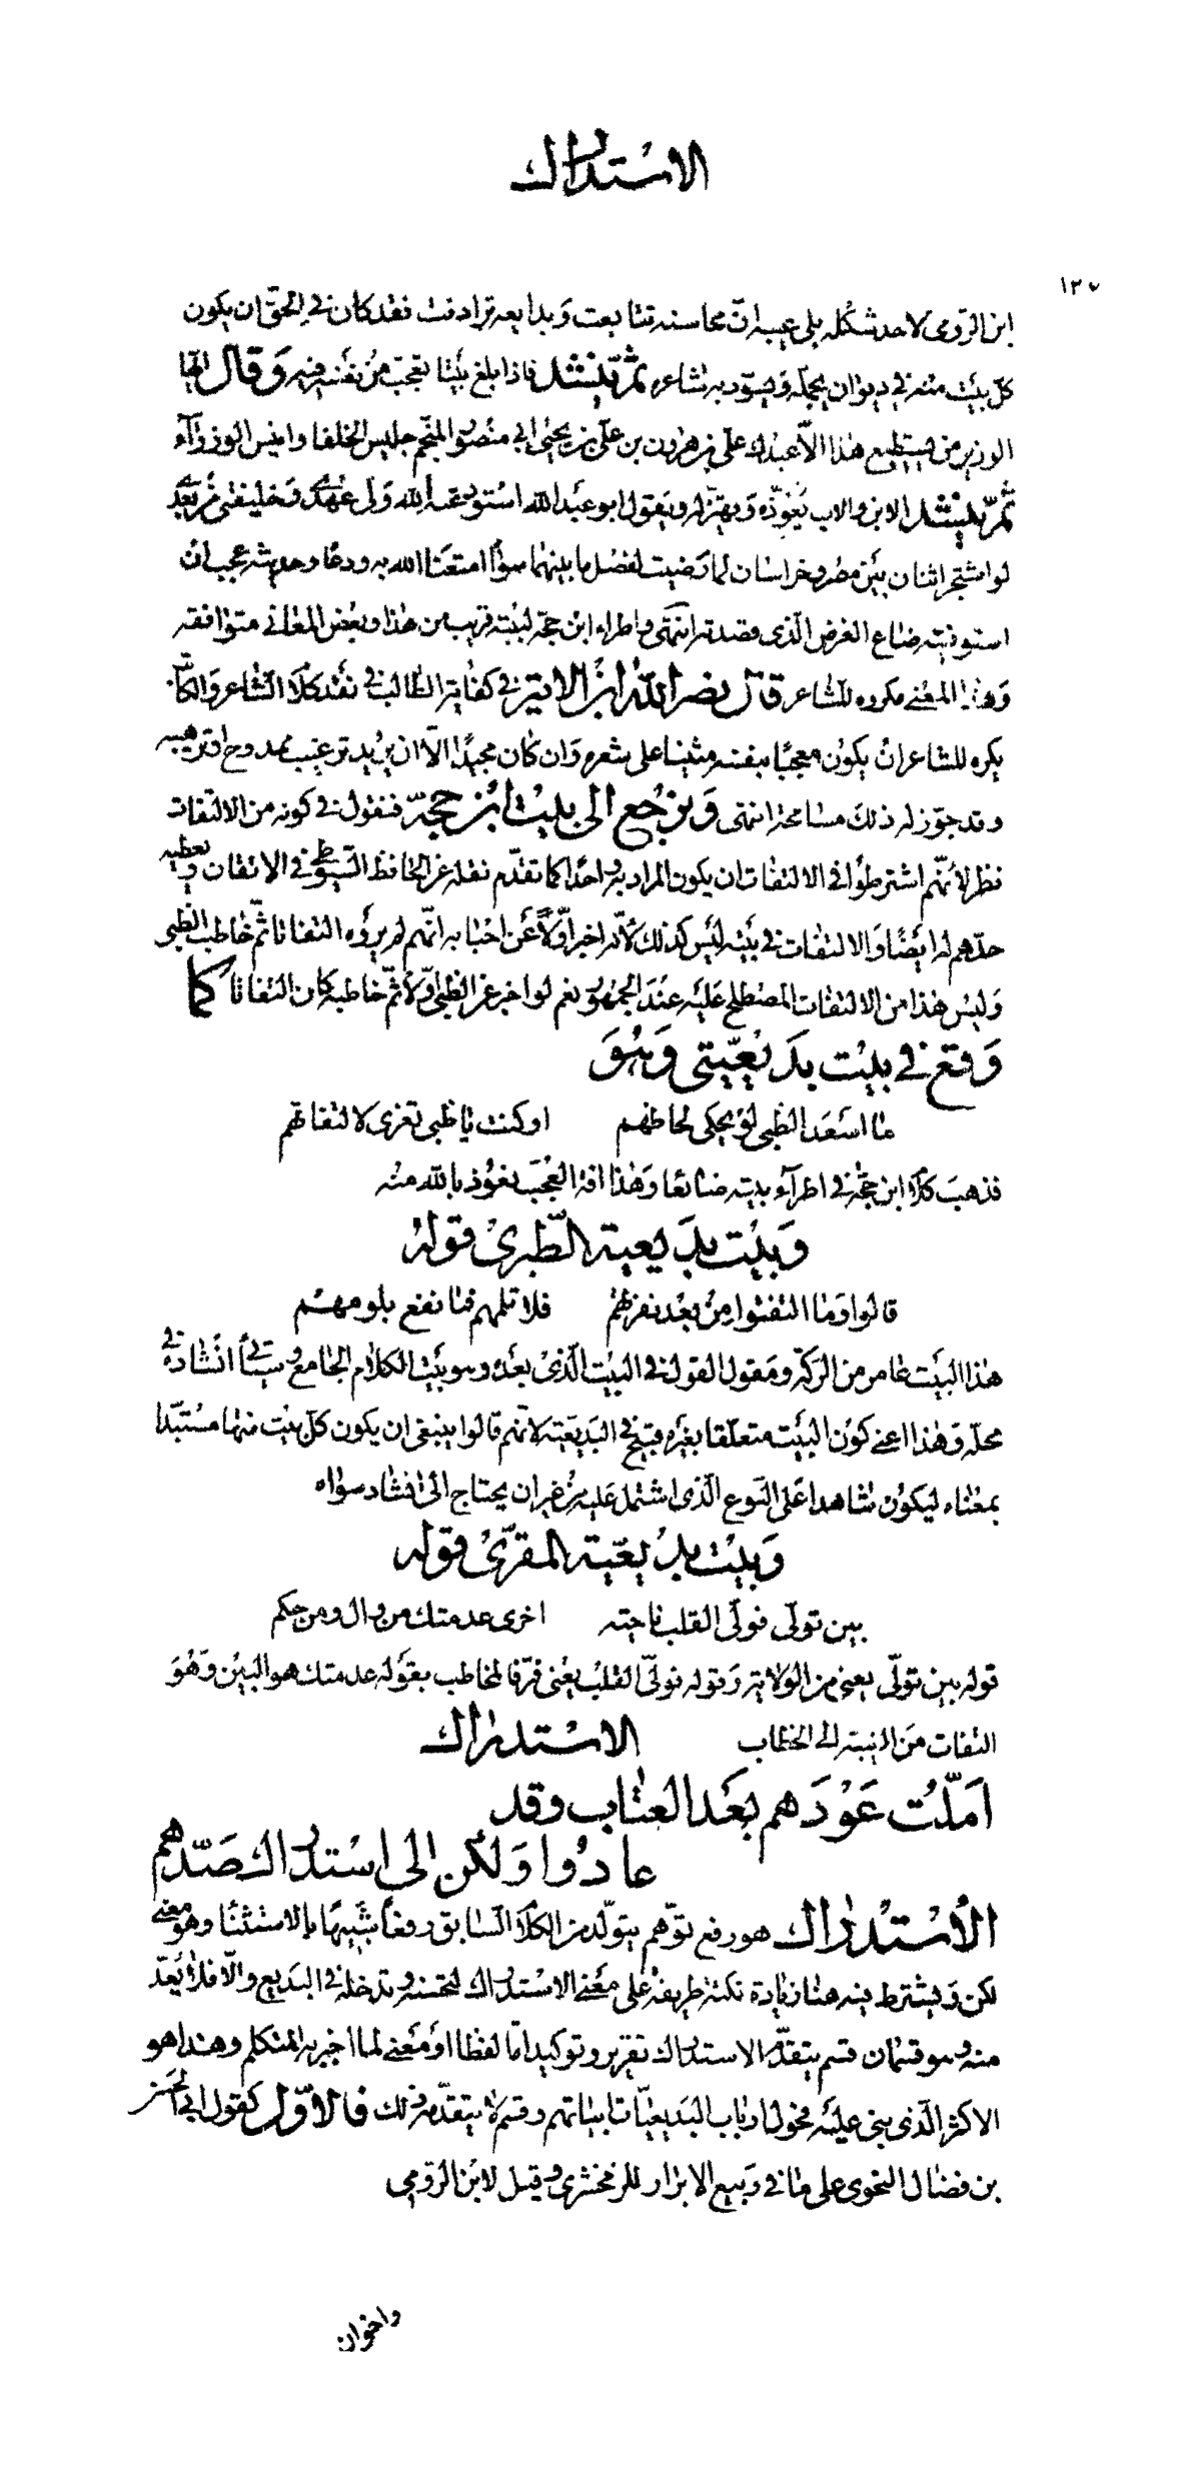 الاستدراك
١٢٧
ابن الرومى لاحد شكله بلى عيبه انّ محاسنه تتابعت وبدايعه ترادفت فقد كان في الحق ان يكون
كل بيت منه في ديوان يجمله ويسود به شاعره ثم ينشد فاذا بلغ بيتا تعجب من نفسه فيه وقال ايها
الوزير من يستطيع هذا الا عبدك على بن هرون بن على بن يحيى ابى منصور المنجم جليس الخلفا وانيس الوزراء
ثم ينشد الابن والاب يعوذه ويهتز له ويقول ابو عبد الله استودعه الله ولى عهدى وخليفتى من بعدى
لو اشتجر اثنان بين مصر وخراسان لما رضيت لفصل ما بينهما سواه امتعنا الله به ورعاه وحديثه عجب ان
استوفيته ضاع الغرض الّذى قصدته انتهى واطراء ابن حجة لبيته قريب من هذا وبعض المعانى متوافقه
وهذا المعنى مكروه للشاعر قال نصر الله ابن الاثير في كفاية الطالب في نقد كلام الشاعر والكاتب
يكره للشاعر ان يكون معجبا بنفسه مثنيا على شعره وان كان مجيدا الّا ان يريد ترغيب ممدوح او ترهيبه
وقد جوّز له ذلك مسامحة انتهى ونرجع الى بيت ابن حجة فنقول في كونه من الالتفات
نظر لانّهم اشترطوا في الالتفات ان يكون المراد به واحدا كما تقدّم نقله عن الحافظ السيوطى في الاتقان ويعطيه
حدّهم له ايضا والالتفات في بيته ليس كذلك لانه اخبر اوّلا عن احبابه انّهم لم يروه التفاتا ثمّ خاطب الظبى
وليس هذا من الالتفات المصطلح عليه عند الجمهور نعم لو اخبر عن الظبى اولا ثمّ خاطبه كان التفاتا كما
وقع في بيت بديعيّتى وهو
ما اسعد الظبى لو يحكى لحاظهم او كنت يا ظبى تعزى لالتفاتهم
فذهب كلام ابن حجّة في اطرآء بيته ضائعا وهذا آفة العجب نعوذ بالله منه
وبيت بديعية الطّبرى قوله
قالوا وما التفتوا من بعد نفرتهم فلا تلمهم فما نفع بلومهم
هذا البيت عامر من الركة ومقول القول في البيت الّذى بعده وهو بيت الكلام الجامع وسيأتى انشاده في
محله وهذا اعنى كون البيت متعلقا بغيره قبيح في البديعية لانّهم قالوا ينبغى ان يكون كلّ بيت منها مستبدا
بمعناه ليكون شاهدا على النوع الّذى اشتمل عليه من غير ان يحتاج الى انشاد سواه
وبيت بديعيّة المقرّى قوله
بين تولّى فولّى القلب ناحيته اخرى عدمتك من وال ومن حكم
قوله بين تولّى يعنى من الولاية وقوله فولّى القلب يعنى فرّ فالمخاطب بقوله عدمتك هو البين وهو
التفات من الغيبة الى الخطاب الاستدراك
امّلت عودهم بعد العتاب وقد
عادوا ولكن الى استدراك صدّهم
الاستدراك هو رفع توّهم يتولّد من الكلام السابق رفعا شبيها بالاستثنا وهو معنى
لكن ويشترط فيه هنا زيادة نكتة طريفة على معنى الاستدراك لتحسنه وتدخله في البديع والّا فلا يعدّ
منه وهو قسمان قسم يتقدّم الاستدراك تقرير وتوكيد امّا لفظا او معنى لما اخبر به المتكلم وهذا هو
الاكثر الّذى بنى عليه فحول ارباب البديعيّات ابياتهم وقسم لا يتقدّمه ذلك فالاوّل كقول ابى الحسن
بن فضال النحوى على ما في ربيع الابرار للزمخشرى وقيل لابن الرومى
واخوان